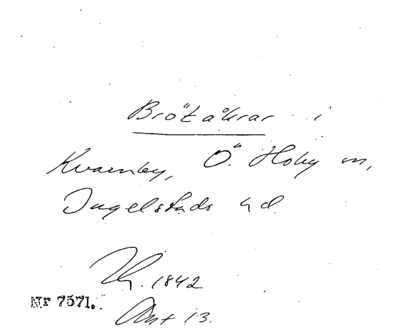 Brötåkrar i
Kvarnby, Ö. Hoby sn,
Ingelstads hd.
1842
Nr 7571.
Ant 13.